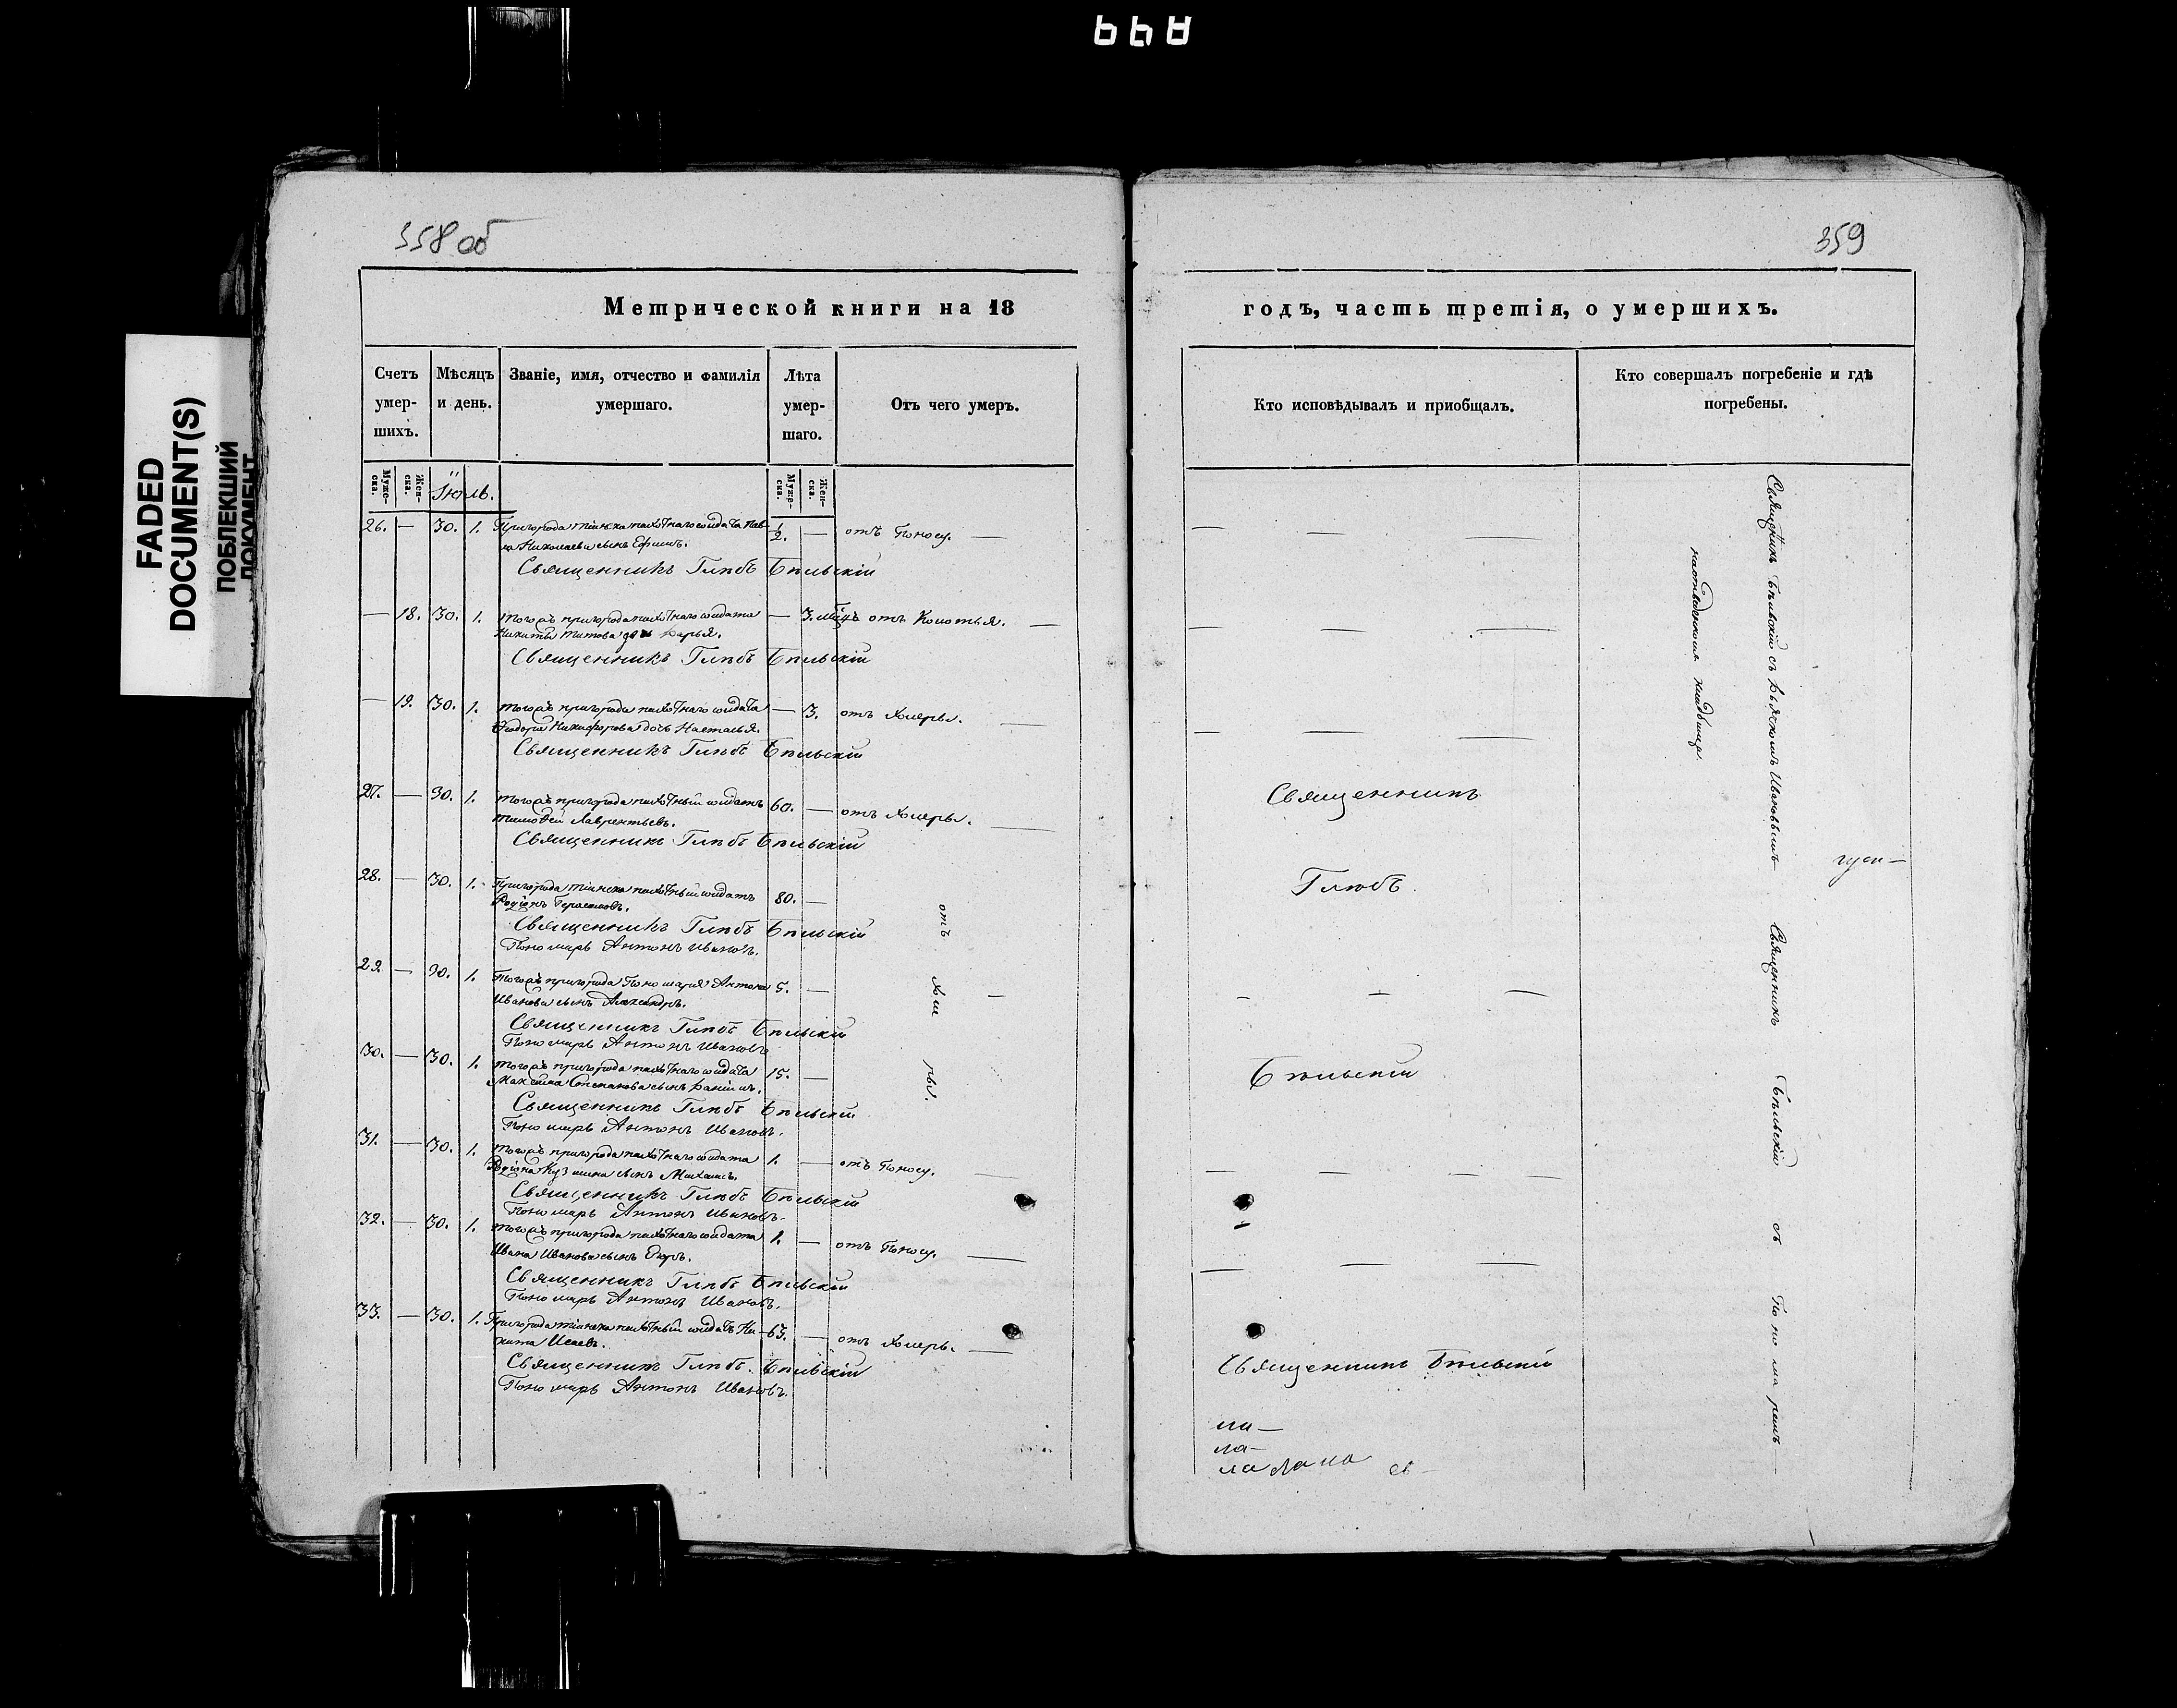 899
FADED
DOCUMENT(S)
ПОБЛЕКШИЙ
ДОКУМЕНТ
358 об
Метрической книги на 18
Счетъ умер-шихъ.
Мѣсяцъ и день.
Званіе, имя, отчество и фамилія умершаго.
Лѣта умер-шаго.
Отъ чего умеръ.
Муже-ска.
Жен-ска.
Іюль.
Муже-ска.
Жен-ска.
26. — 30. 1. Пригорода Тіинска пахотнаго солдата Пав- 1/2. — отъ Поносу. —
ла Николаева сынъ Ефимъ.
Священникъ Глѣбъ Бѣльскій
— 18. 30. 1. Тогожъ пригорода пахотнаго солдата — 3. мѣц. отъ Колотья. —
Никиты Титова дочь Дарья.
Священникъ Глѣбъ Бѣльскій
— 19. 30. 1. Тогожъ пригорода пахотнаго солдата — 3. отъ Холеры. —
Ѳеодора Никифорова дочь Настасья.
Священникъ Глѣбъ Бѣльскій
27. — 30. 1. Тогожъ пригорода пахотный солдатъ 60. — отъ Холеры. —
Тимофей Лаврентьевъ.
Священникъ Глѣбъ Бѣльскій
28. — 30. 1. Пригорода Тіинска пахотный солдатъ 80. —
Родіонъ Герасимовъ.
Священникъ Глѣбъ Бѣльскій
Пономарь Антонъ Ивановъ.
29. — 30. 1. Тогожъ пригорода Пономаря Антона 5. —
Иванова сынъ Александръ.
Священникъ Глѣбъ Бѣльскій
Пономарь Антонъ Ивановъ
30. — 30. 1. Тогожъ пригорода пахотнаго солдата 15. —
Максима Степанова сынъ Даніилъ.
Священникъ Глѣбъ Бѣльскій
Пономарь Антонъ Ивановъ.
отъ Холеры.
31. — 30. 1. Тогожъ пригорода пахотнаго солдата 1. — отъ Поносу. —
Родіона Кузмина сынъ Михаилъ.
Священникъ Глѣбъ Бѣльскій
Пономарь Антонъ Ивановъ.
32. — 30. 1. Тогожъ пригорода пахотнаго солдата 1. — отъ Поносу. —
Ивана Иванова сынъ Егоръ.
Священникъ Глѣбъ Бѣльскій
Пономарь Антонъ Ивановъ.
33. — 30. 1. Пригорода Тіинска пахотный солдатъ Ни- 63. — отъ Холеры. —
кита Исаевъ.
Священникъ Глѣбъ Бѣльскій
Пономарь Антонъ Ивановъ.
359
годъ, часть третія, о умершихъ.
Кто исповѣдывалъ и приобщалъ.
Кто совершалъ погребеніе и гдѣ погребены.
Священникъ
Глѣбъ
Бѣльскій
Священникъ Бѣльскій
ла —
ла —
ла
Священникъ Бѣльскій съ Дьячкомъ Ивановымъ
на отведенномъ кладбищѣ.
Священникъ Бѣльскій съ Пономаремъ